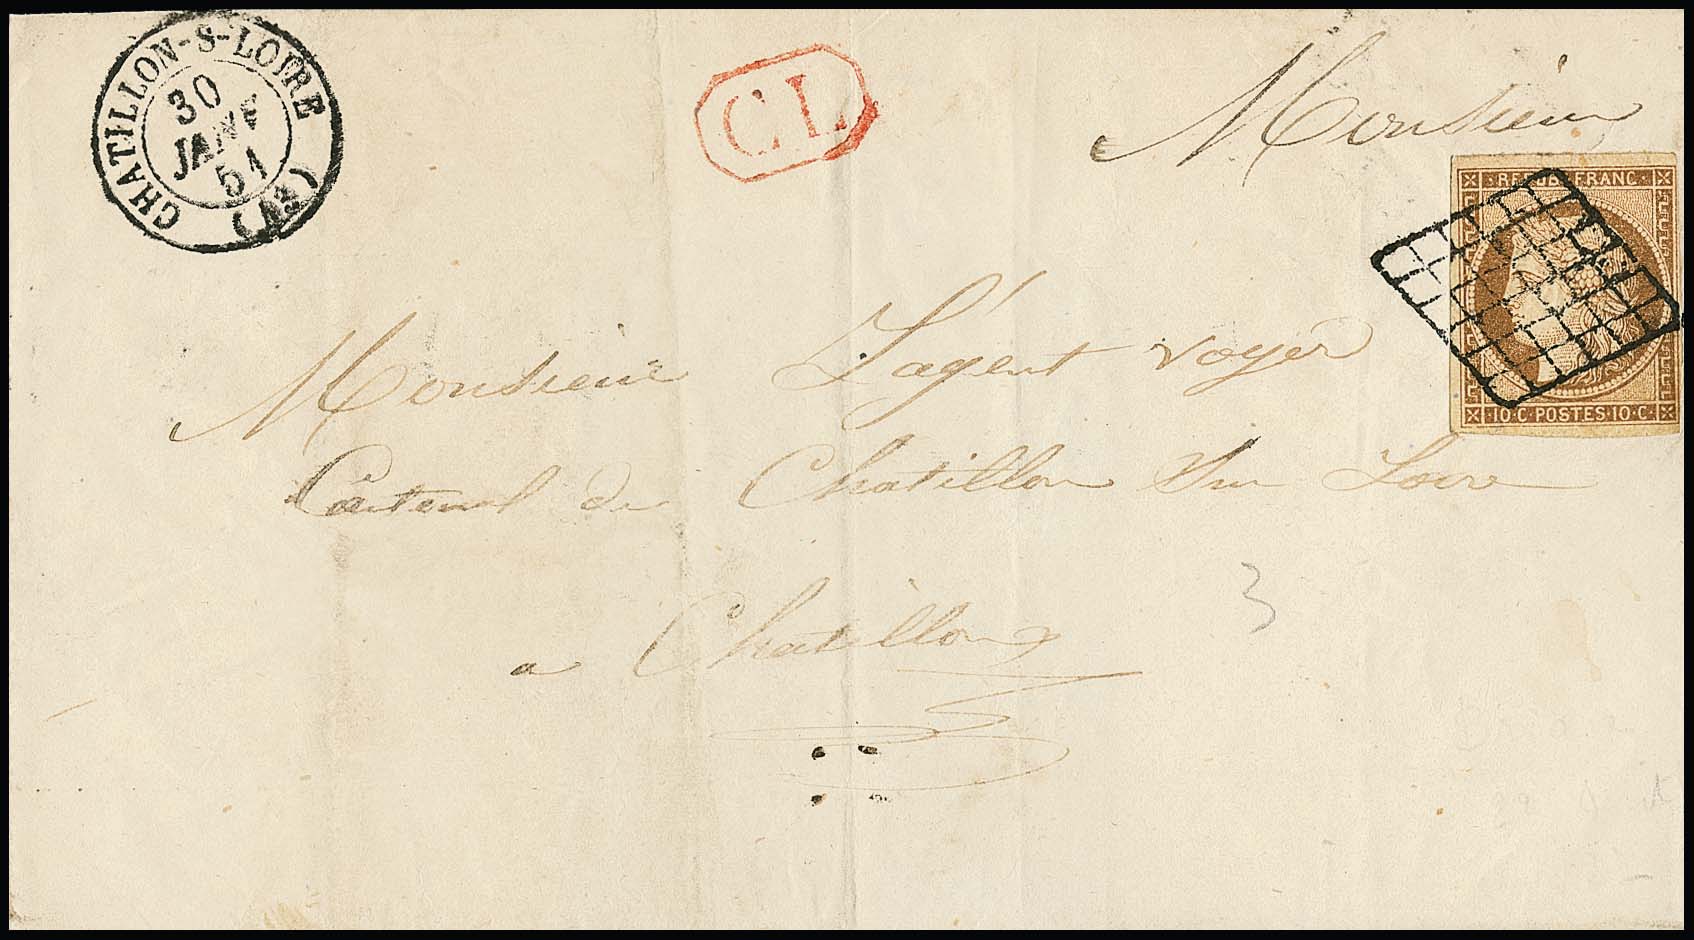 CHATILLON-S-LOIRE
30
JANV
51
(43)
CL
Monsieur
REPUB. FRANC.
10·C·POSTES 10·C·
Monsieur L'agent voyer
Cantonal de Chatillon Sur Loire
a Chatillon
3